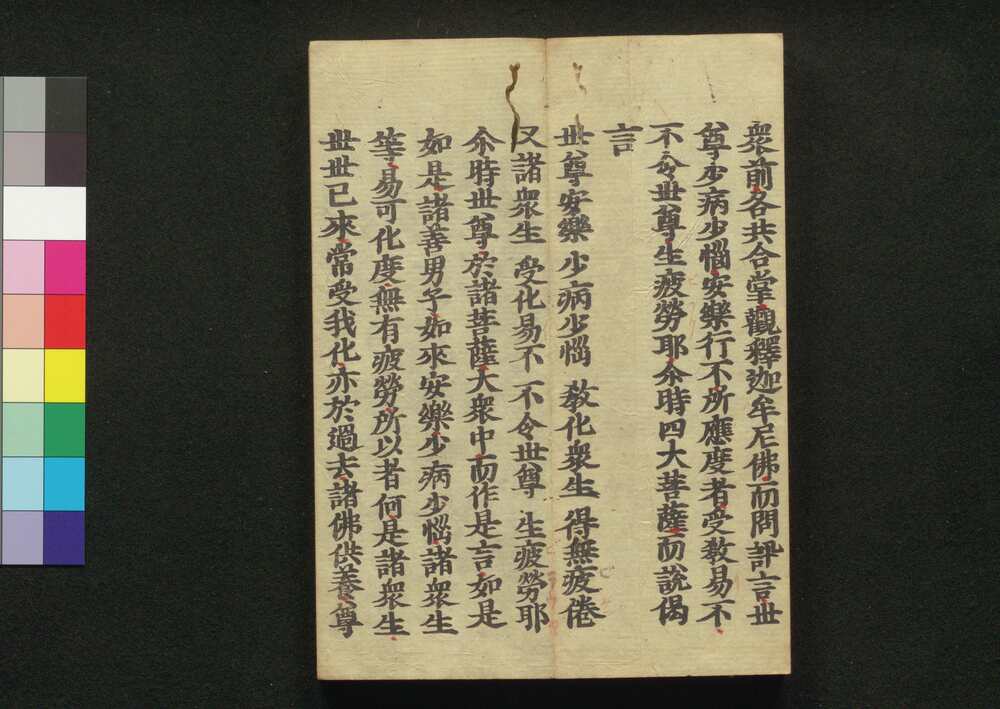 衆前各共合掌觀釋迦牟尼佛而問訊言世
尊少病少惱安樂行不所應度者受教易不
不令世尊生疲勞耶尒時四大菩薩而說偈
言
世尊安樂 少病少惱 教化衆生 得無疲倦
又諸衆生 受化易不 不令世尊 生疲勞耶
尒時世尊於諸菩薩大衆中而作是言如是
如是諸善男子如來安樂少病少惱諸衆生
等易可化度無有疲勞所以者何是諸衆生
世世已來常受我化亦於過去諸佛供養尊